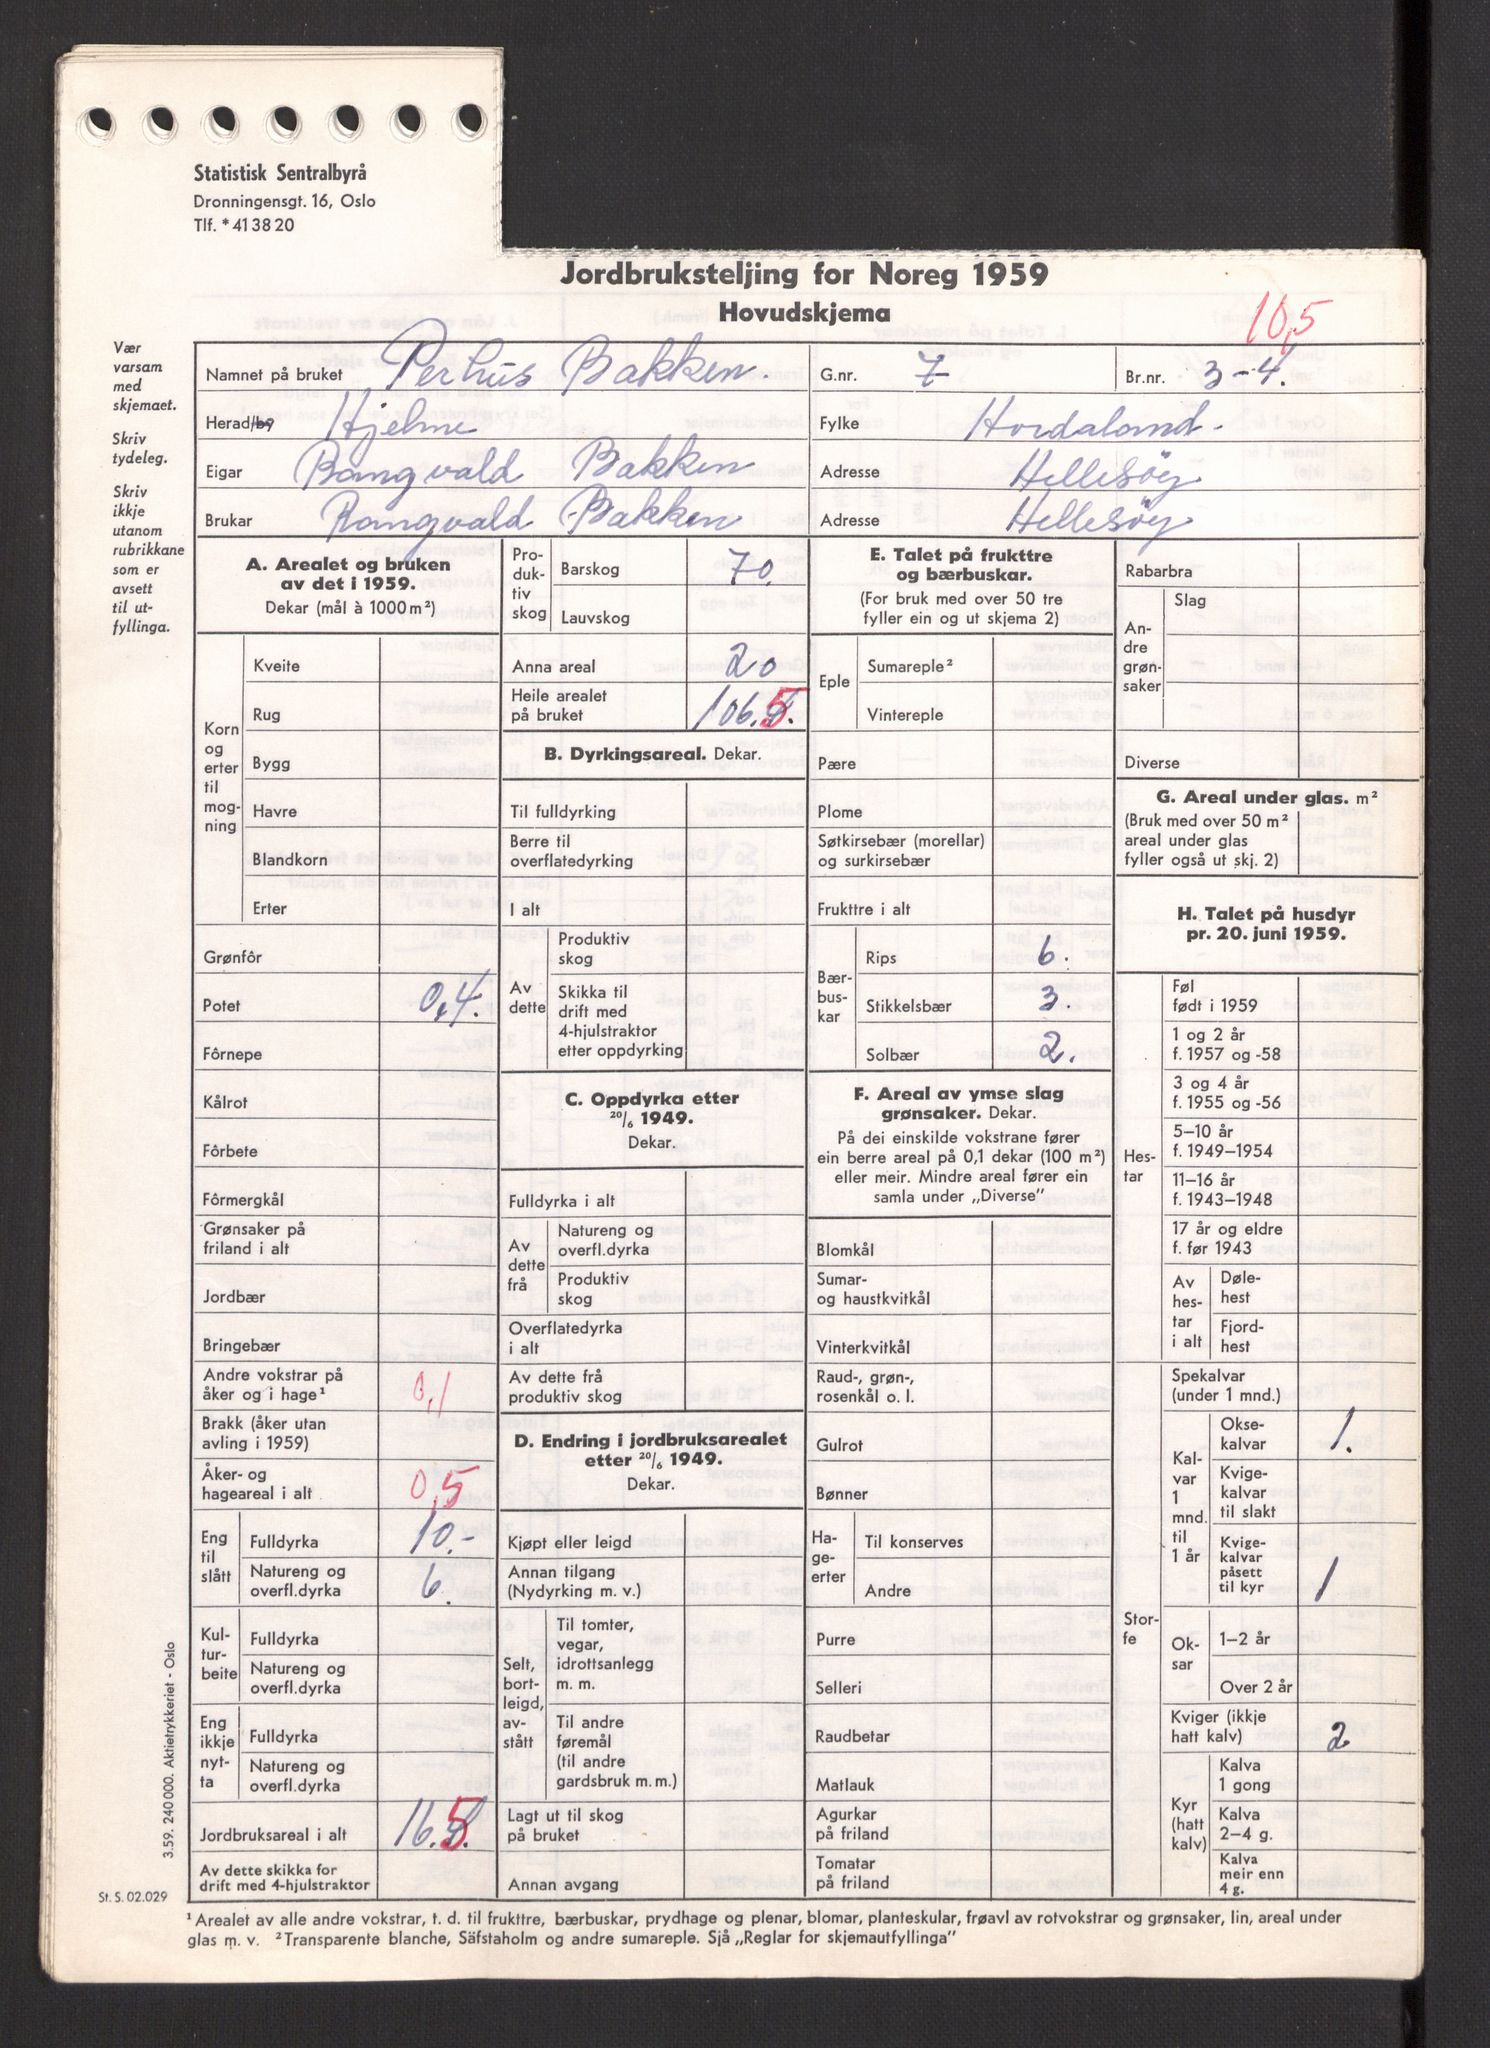 Statistisk Sentralbyrå
Dronningensgt. 16, Oslo
Tlf. * 41 38 20
Jordbruksteljing for Noreg 1959
Hovudskjema
10,5
Vær
varsam
med
skjemaet.
Skriv
tydeleg.
Skriv
ikkje
utanom
rubrikkane
som er
avsett
til ut-
fyllinga.
Namnet på bruket Perhus Bakken. G.nr. 7 Br.nr. 3-4.
Herad/by Hjelme Fylke Hordaland.
Eigar Rangvald Bakken Adresse Hellesöy
Brukar Rangvald Bakken Adresse Hellesöy
A. Arealet og bruken
av det i 1959.
Dekar (mål à 1000 m²)
Korn
og
erter
til
mog-
ning
Kveite
Rug
Bygg
Havre
Blandkorn
Erter
Grønfôr
Potet 0,4.
Fôrnepe
Kålrot
Fôrbete
Fôrmergkål
Grønsaker på
friland i alt
Jordbær
Bringebær
Andre vokstrar på
åker og i hage¹ 0,1
Brakk (åker utan
avling i 1959)
Åker- og
hageareal i alt 0,5
Eng
til
slått
Fulldyrka 10.-
Natureng og
overfl.dyrka 6.
Kul-
tur-
beite
Fulldyrka
Natureng og
overfl.dyrka
Eng
ikkje
nyt-
ta
Fulldyrka
Natureng og
overfl.dyrka
Jordbruksareal i alt 16.5
Av dette skikka for
drift med 4-hjulstraktor
Pro-
duk-
tiv
skog
Barskog 70.
Lauvskog
Anna areal 20
Heile arealet
på bruket 106.5.
B. Dyrkingsareal. Dekar.
Til fulldyrking
Berre til
overflatedyrking
I alt
Av
dette
Produktiv
skog
Skikka til
drift med
4-hjulstraktor
etter oppdyrking
C. Oppdyrka etter
20/6 1949.
Dekar.
Fulldyrka i alt
Av
dette
frå
Natureng og
overfl.dyrka
Produktiv
skog
Overflatedyrka
i alt
Av dette frå
produktiv skog
D. Endring i jordbruksarealet
etter 20/6 1949.
Dekar.
Kjøpt eller leigd
Annan tilgang
(Nydyrking m. v.)
Selt,
bort-
leigd,
av-
stått
Til tomter,
vegar,
idrottsanlegg
m. m.
Til andre
føremål
(til andre
gardsbruk m. m.)
Lagt ut til skog
på bruket
Annan avgang
E. Talet på frukttre
og bærbuskar.
(For bruk med over 50 tre
fyller ein og ut skjema 2)
Eple
Sumareple²
Vintereple
Pære
Plome
Søtkirsebær (morellar)
og surkirsebær
Frukttre i alt
Bær-
bus-
kar
Rips 6.
Stikkelsbær 3.
Solbær 2.
F. Areal av ymse slag
grønsaker. Dekar.
På dei einskilde vokstrane fører
ein berre areal på 0,1 dekar (100 m²)
eller meir. Mindre areal fører ein
samla under „Diverse”
Blomkål
Sumar-
og haustkvitkål
Vinterkvitkål
Raud-, grøn-,
rosenkål o. l.
Gulrot
Bønner
Ha-
ge-
erter
Til konserves
Andre
Purre
Selleri
Raudbetar
Matlauk
Agurkar
på friland
Tomatar
på friland
Rabarbra
An-
dre
grøn-
saker
Slag
Diverse
G. Areal under glas. m²
(Bruk med over 50 m²
areal under glas
fyller også ut skj. 2)
H. Talet på husdyr
pr. 20. juni 1959.
Hes-
tar
Føl
født i 1959
1 og 2 år
f. 1957 og -58
3 og 4 år
f. 1955 og -56
5–10 år
f. 1949–1954
11–16 år
f. 1943–1948
17 år og eldre
f. før 1943
Av
hes-
tar
i alt
Døle-
hest
Fjord-
hest
Stor-
fe
Spekalvar
(under 1 mnd.)
Kal-
var
1
mnd.
til
1 år
Okse-
kalvar 1.
Kvige-
kalvar
til slakt
Kvige-
kalvar
påsett
til kyr 1
Ok-
sar
1–2 år
Over 2 år
Kviger (ikkje
hatt kalv) 2
Kyr
(hatt
kalv)
Kalva
1 gong
Kalva
2–4 g.
Kalva
meir enn
4 g.
3.59. 240 000. Aktietrykkeriet - Oslo
St. S. 02.029
¹ Arealet av alle andre vokstrar, t. d. til frukttre, bærbuskar, prydhage og plenar, blomar, planteskular, frøavl av rotvokstrar og grønsaker, lin, areal under
glas m. v. ² Transparente blanche, Säfstaholm og andre sumareple. Sjå „Reglar for skjemautfyllinga”